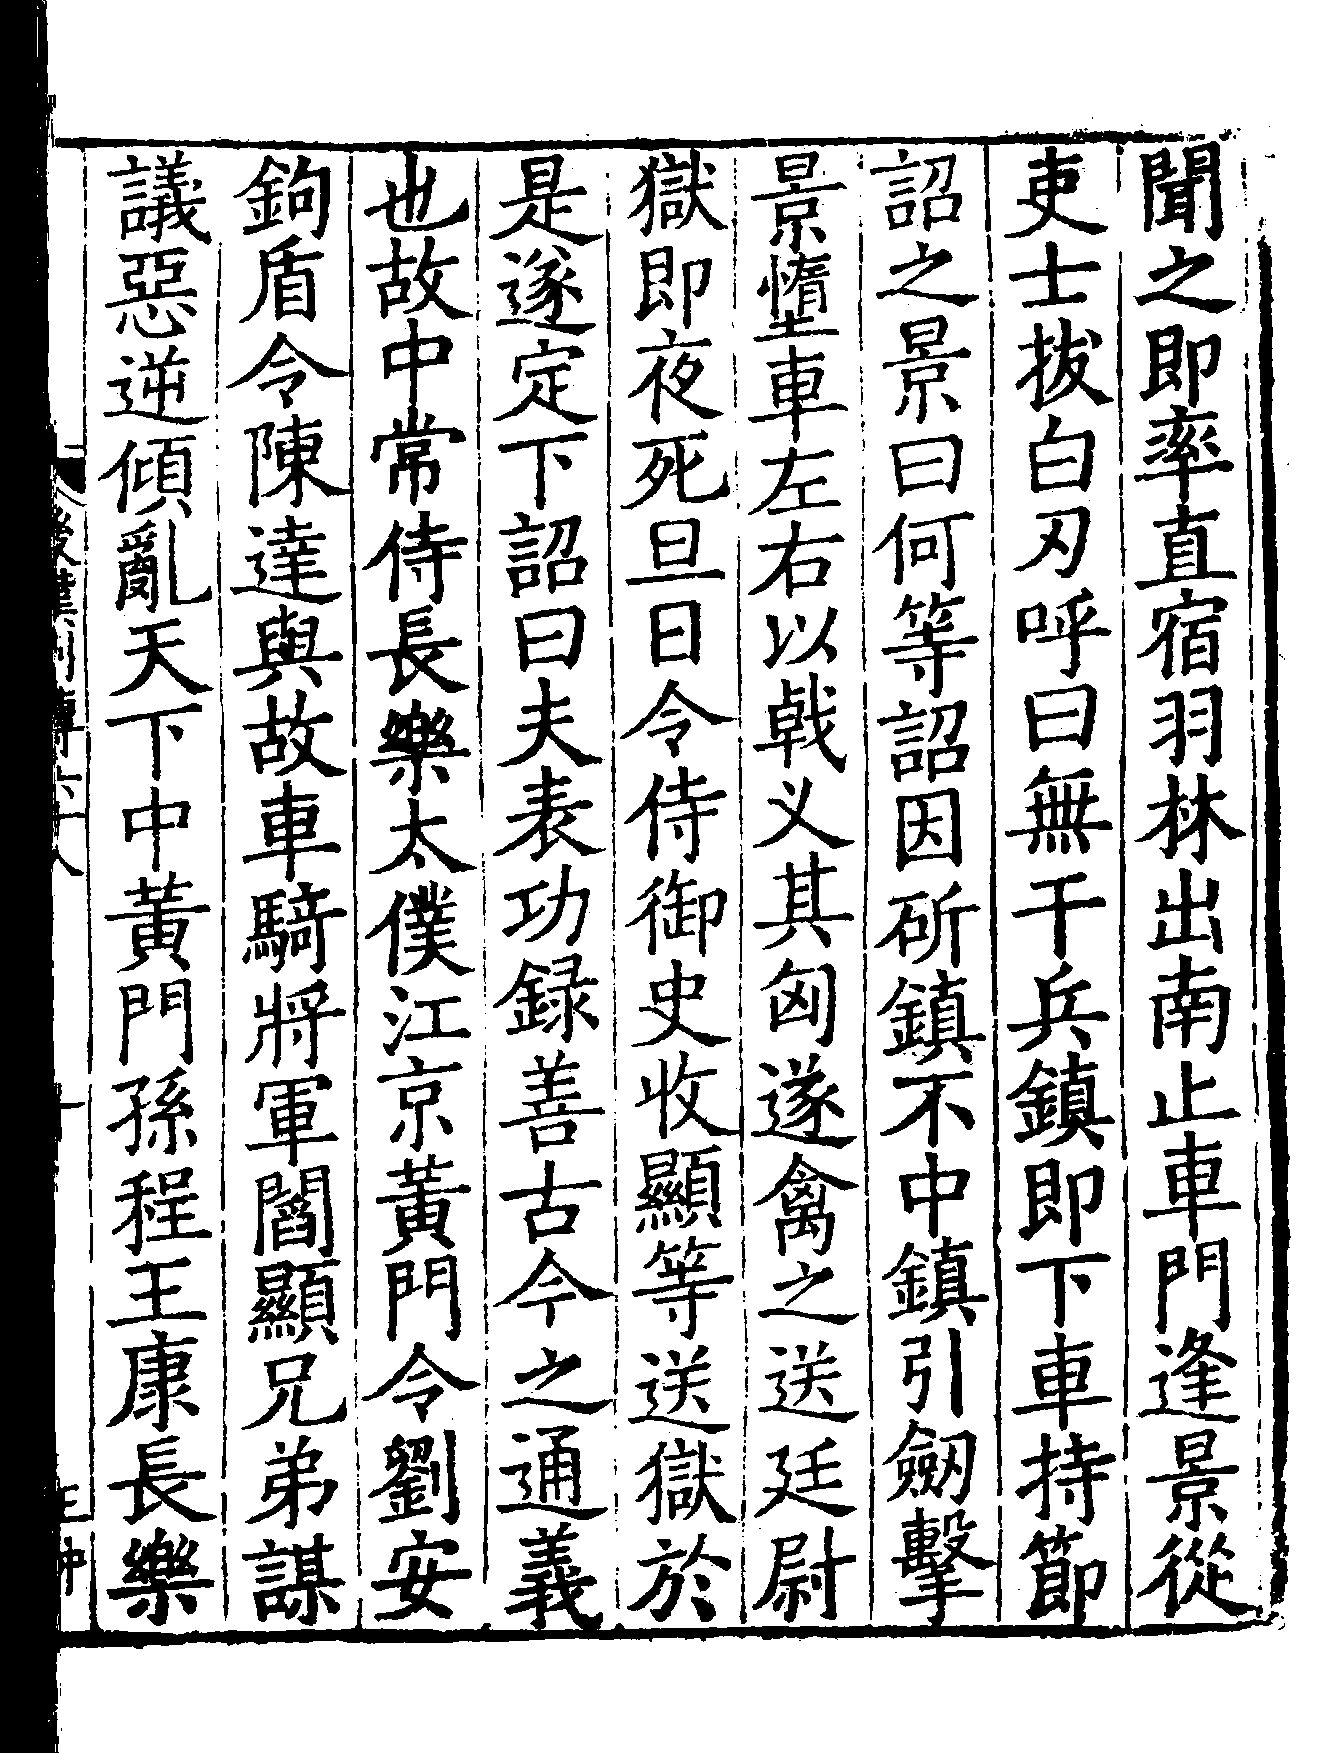 聞之即率直宿羽林出南止車門逢景從
吏士拔白刃呼曰無干兵鎮即下車持節
詔之景曰何等詔因斫鎮不中鎮引劒擊
景墯車左右以戟义其匈遂禽之送廷尉
獄即夜死旦日令侍御史收顯等送獄於
是遂定下詔曰夫表功録善古今之通義
也故中常侍長樂太僕江京黃門令劉安
鉤盾令陳達與故車騎將軍閻顯兄弟謀
議惡逆傾亂天下中黃門孫程王康長樂